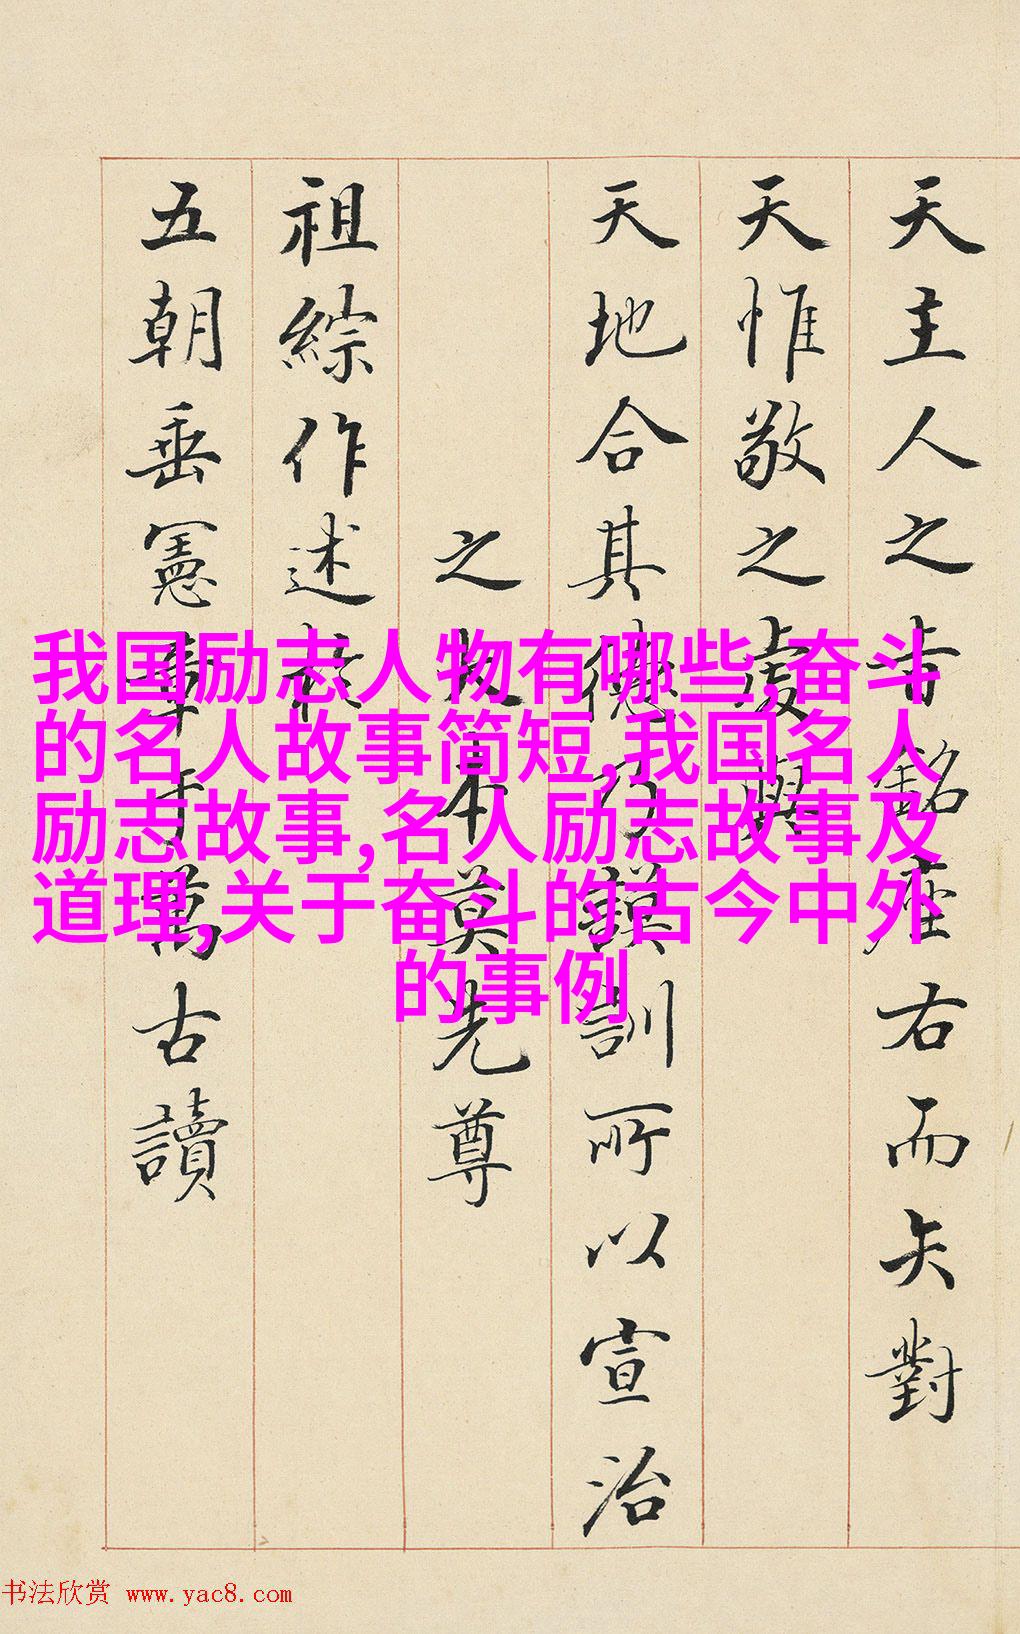 天主人之 銘座右而矢對
天惟敬之處與
天地合其德乃謨訓所以宣治
之 本莫先尊
祖綜作述於
五朝垂憲章于萬古讀
我国励志人物有哪些,奋斗
的名人故事简短,我国名人
励志故事,名人励志故事及
道理,关于奋斗的古今中外
的事例
书法欣赏 www.yac8.com